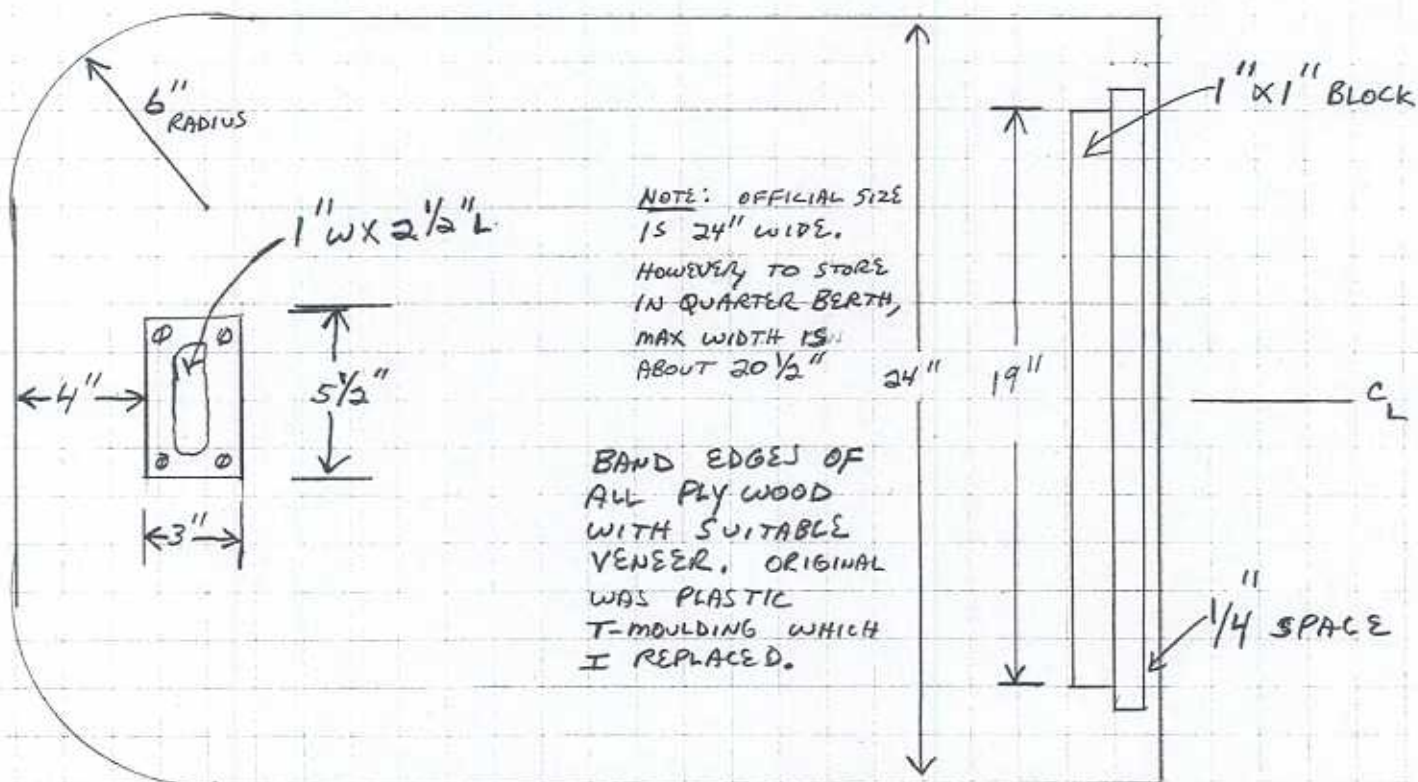 6"
RADIUS
1" W X 2 1/2" L
4"
5 1/2"
3"
NOTE: OFFICIAL SIZE
IS 24" WIDE.
HOWEVER, TO STORE
IN QUARTER BERTH,
MAX WIDTH IS
ABOUT 20 1/2"
BAND EDGES OF
ALL PLYWOOD
WITH SUITABLE
VENEER. ORIGINAL
WAS PLASTIC
T-MOULDING WHICH
I REPLACED.
24"
19"
1" X 1" BLOCK
CL
1/4" SPACE